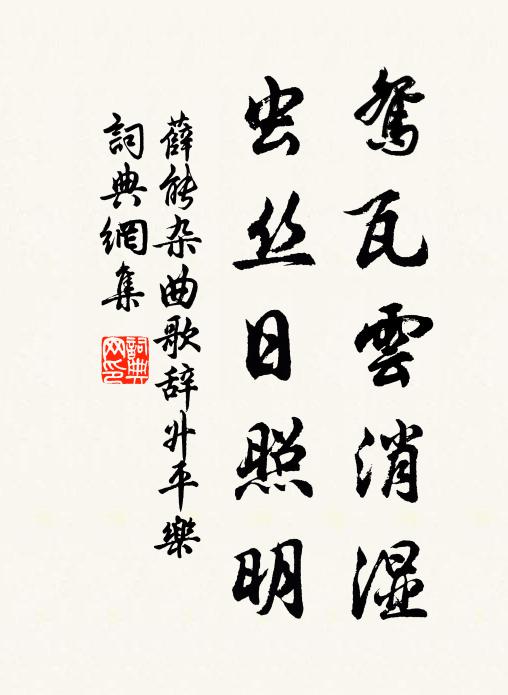 鴛瓦雲消湿
虫丝日照明
薛能杂曲歌辞升平樂
詞典網集
詞典网印